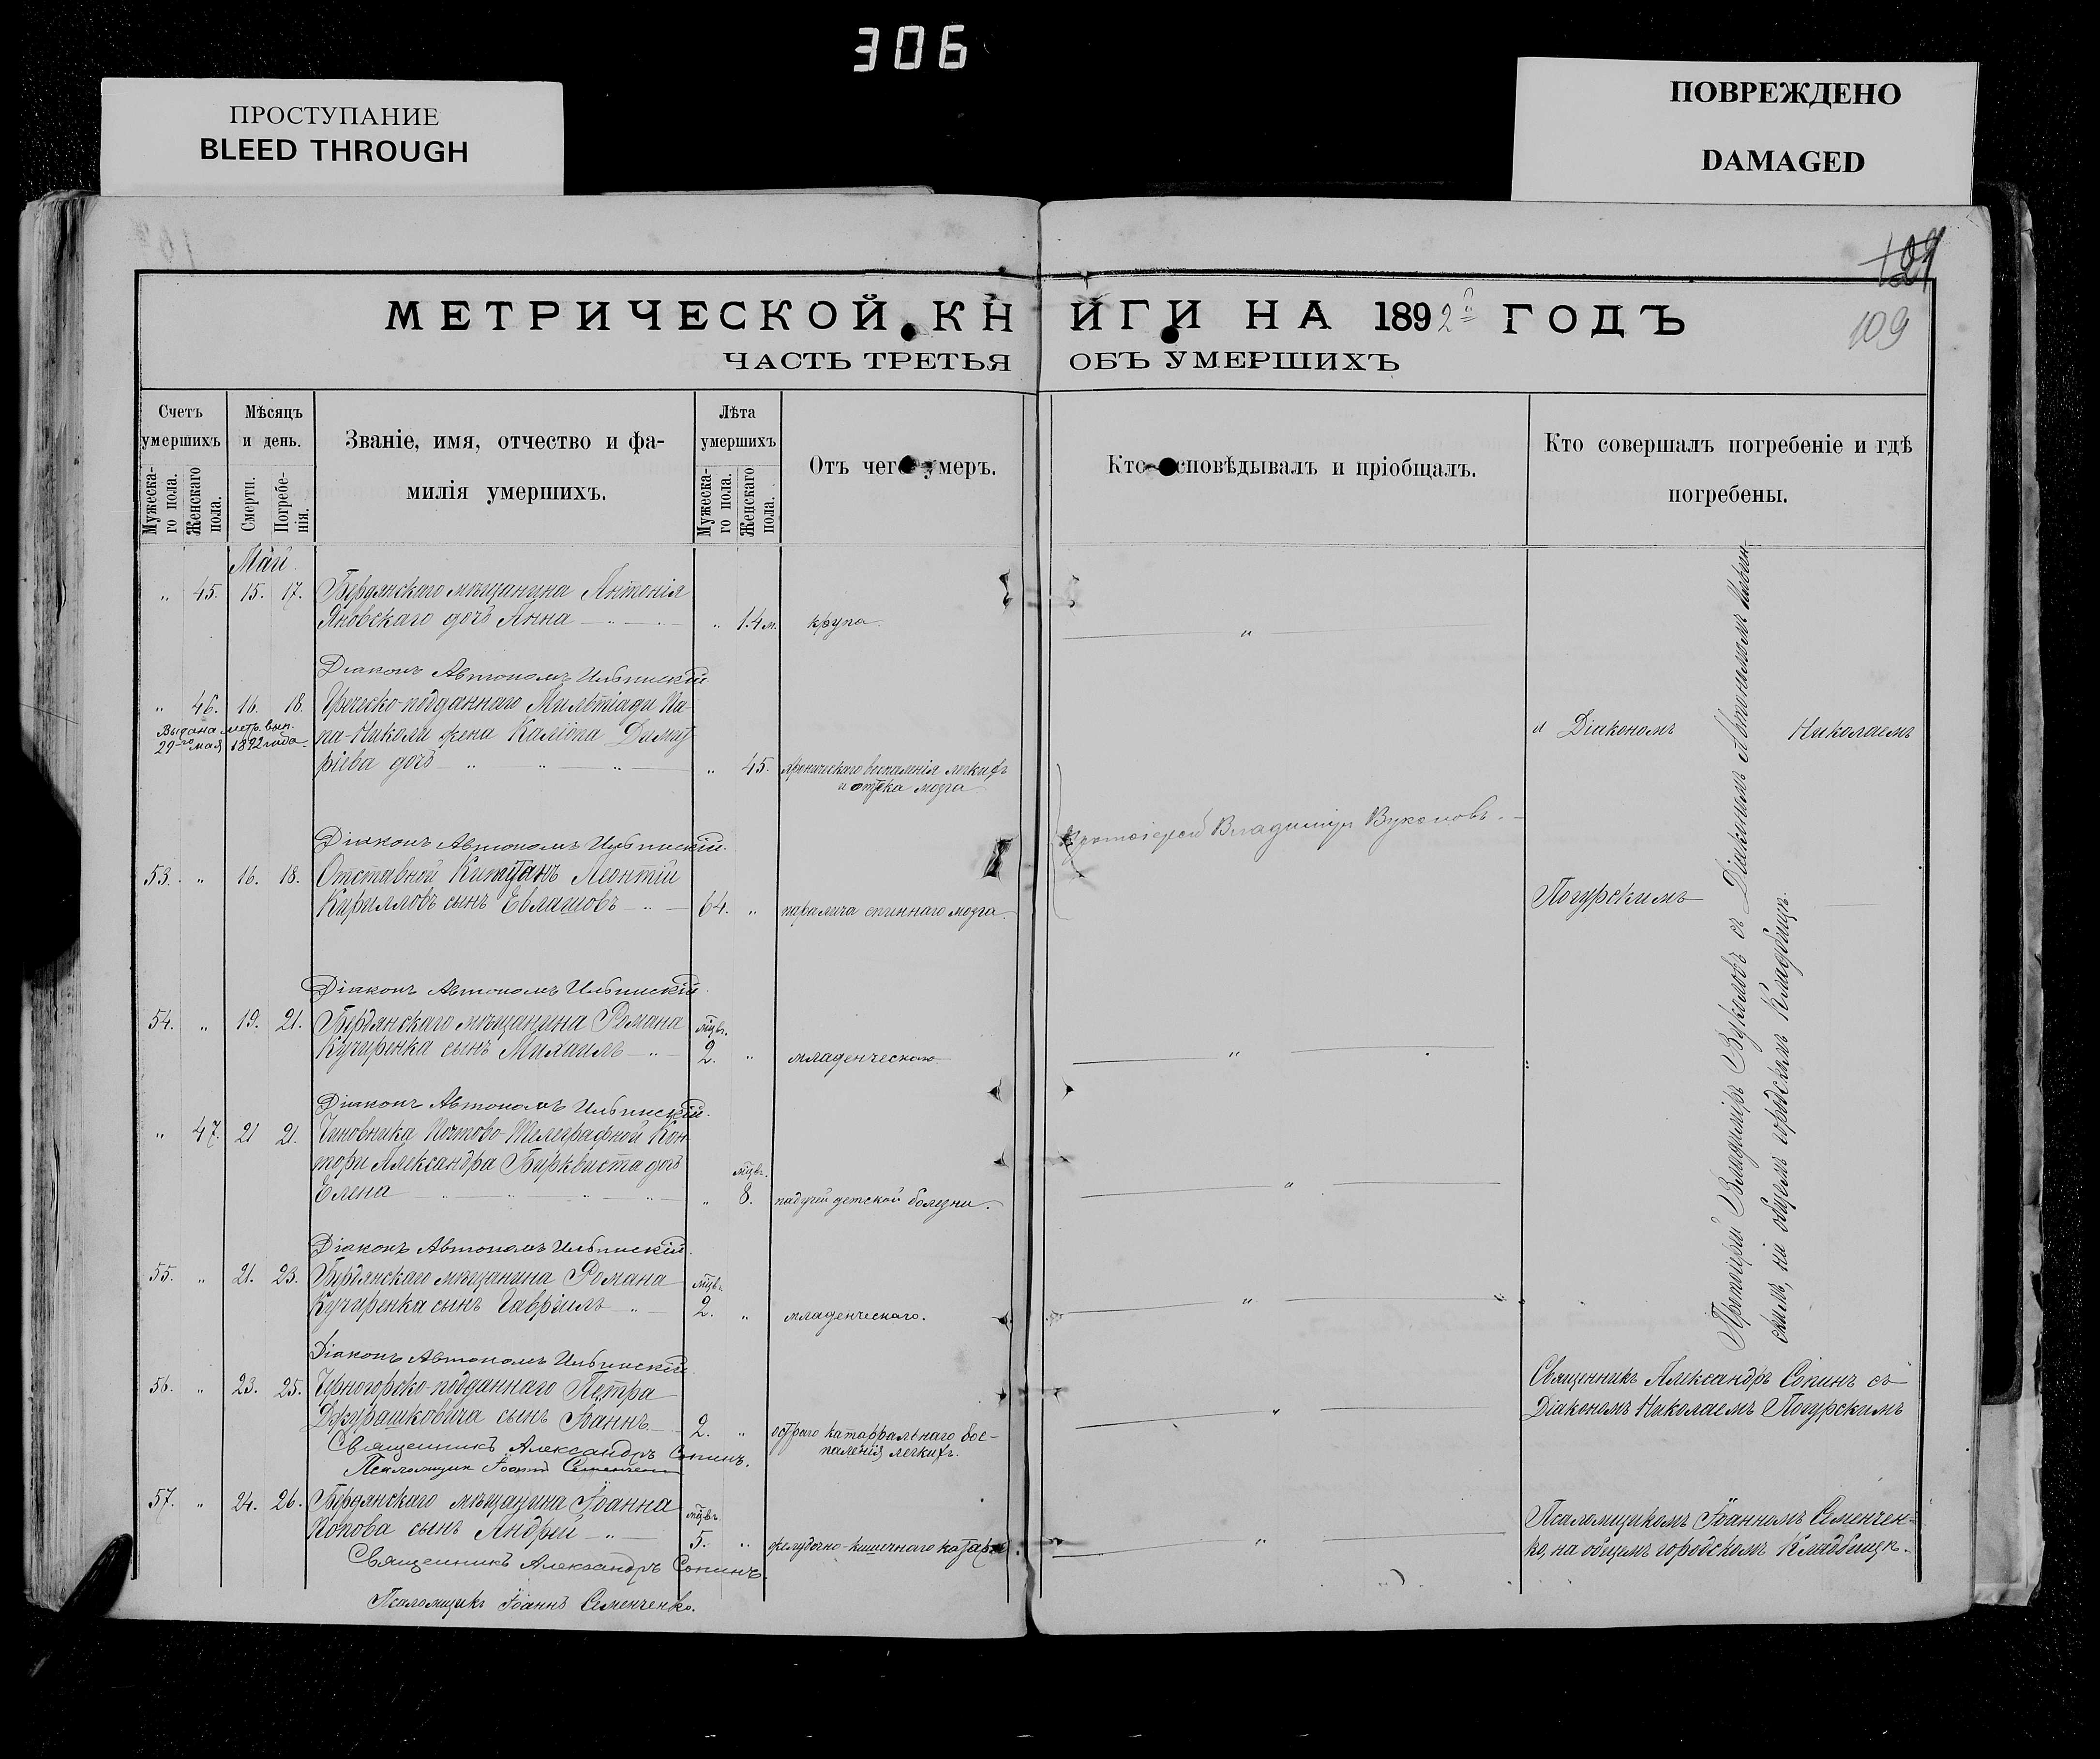 306
ПРОСТУПАНИЕ
BLEED THROUGH
ПОВРЕЖДЕНО
DAMAGED
109
МЕТРИЧЕСКОЙ КНИГИ НА 1892й ГОДЪ
ЧАСТЬ ТРЕТЬЯ ОБЪ УМЕРШИХЪ
Счетъ умершихъ
Мужеска-го пола.
Женскаго пола.
Мѣсяцъ и день.
Смерти.
Погребе-нія.
Званіе, имя, отчество и фа-
милія умершихъ.
Лѣта умершихъ
Мужеска-го пола.
Женскаго пола.
Отъ чего умеръ.
Кто исповѣдывалъ и пріобщалъ.
Кто совершалъ погребеніе и гдѣ
погребены.
Май.
„ 45. 15. 17. Бердянскаго мѣщанина Антонія
Яновскаго дочь Анна — „ 1.4 м. крупа. „
Діаконъ Автономъ Ильинскій.
„ 46. 16. 18. Греческо-подданнаго Мильтіади Па-
Выдана метр. вып.
29го мая 1892 года.
па-Николи жена Каліопа Димит
ріева дочь „ „ „ „ 45. хроническаго воспаленія легкихъ
и отека мозга
Протоіерей Владиміръ Вукеловъ.
и Діакономъ Николаемъ
Діаконъ Автономъ Ильинскій.
53. „ 16. 18. Отставной Капитанъ Леонтій
Кирилловъ сынъ Евлашовъ 64. „ паралича спиннаго мозга.
Погурскимъ
Діаконъ Автономъ Ильинскій.
54. „ 19. 21. Бердянскаго мѣщанина Романа мѣцв.
Кучиренка сынъ Михаилъ „ 2. „ младенческаго „
Діаконъ Автономъ Ильинскій.
„ 47. 21 21. Чиновника Почтово-Телеграфной Кон-
торы Александра Бирквиста дочь мѣцв.
Елена „ „ „ „ „ 8. падучей детской болезни. „
Діаконъ Автономъ Ильинскій.
55. „ 21. 23. Бердянскаго мѣщанина Романа мѣцв.
Кучиренка сынъ Гавріилъ „ 2. „ младенческаго. „ „
Діаконъ Автономъ Ильинскій.
56. „ 23. 25. Черногорско-подданнаго Петра
Джурашковича сынъ Іоаннъ 2. „ остраго катарральнаго вос-
паленія легкихъ.
Священникъ Александръ Сопинъ.
Псаломщикъ Іоаннъ Семенченко
57. „ 24. 26. Бердянскаго мѣщанина Іоанна мѣцв.
Попова сынъ Андрей „ 5. „ желудочно-кишечнаго катарра. „
Священникъ Александръ Сопинъ.
Псаломщикъ Іоаннъ Семенченко.
Протоіерей Владиміръ Вукеловъ съ Діакономъ Автономомъ Ильин-
скимъ, на общемъ городскомъ Кладбищѣ.
Священникъ Александръ Сопинъ съ
Діакономъ Николаемъ Погурскимъ
Псаломщикомъ Іоанномъ Семенчен-
ко, на общемъ городскомъ Кладбищѣ.